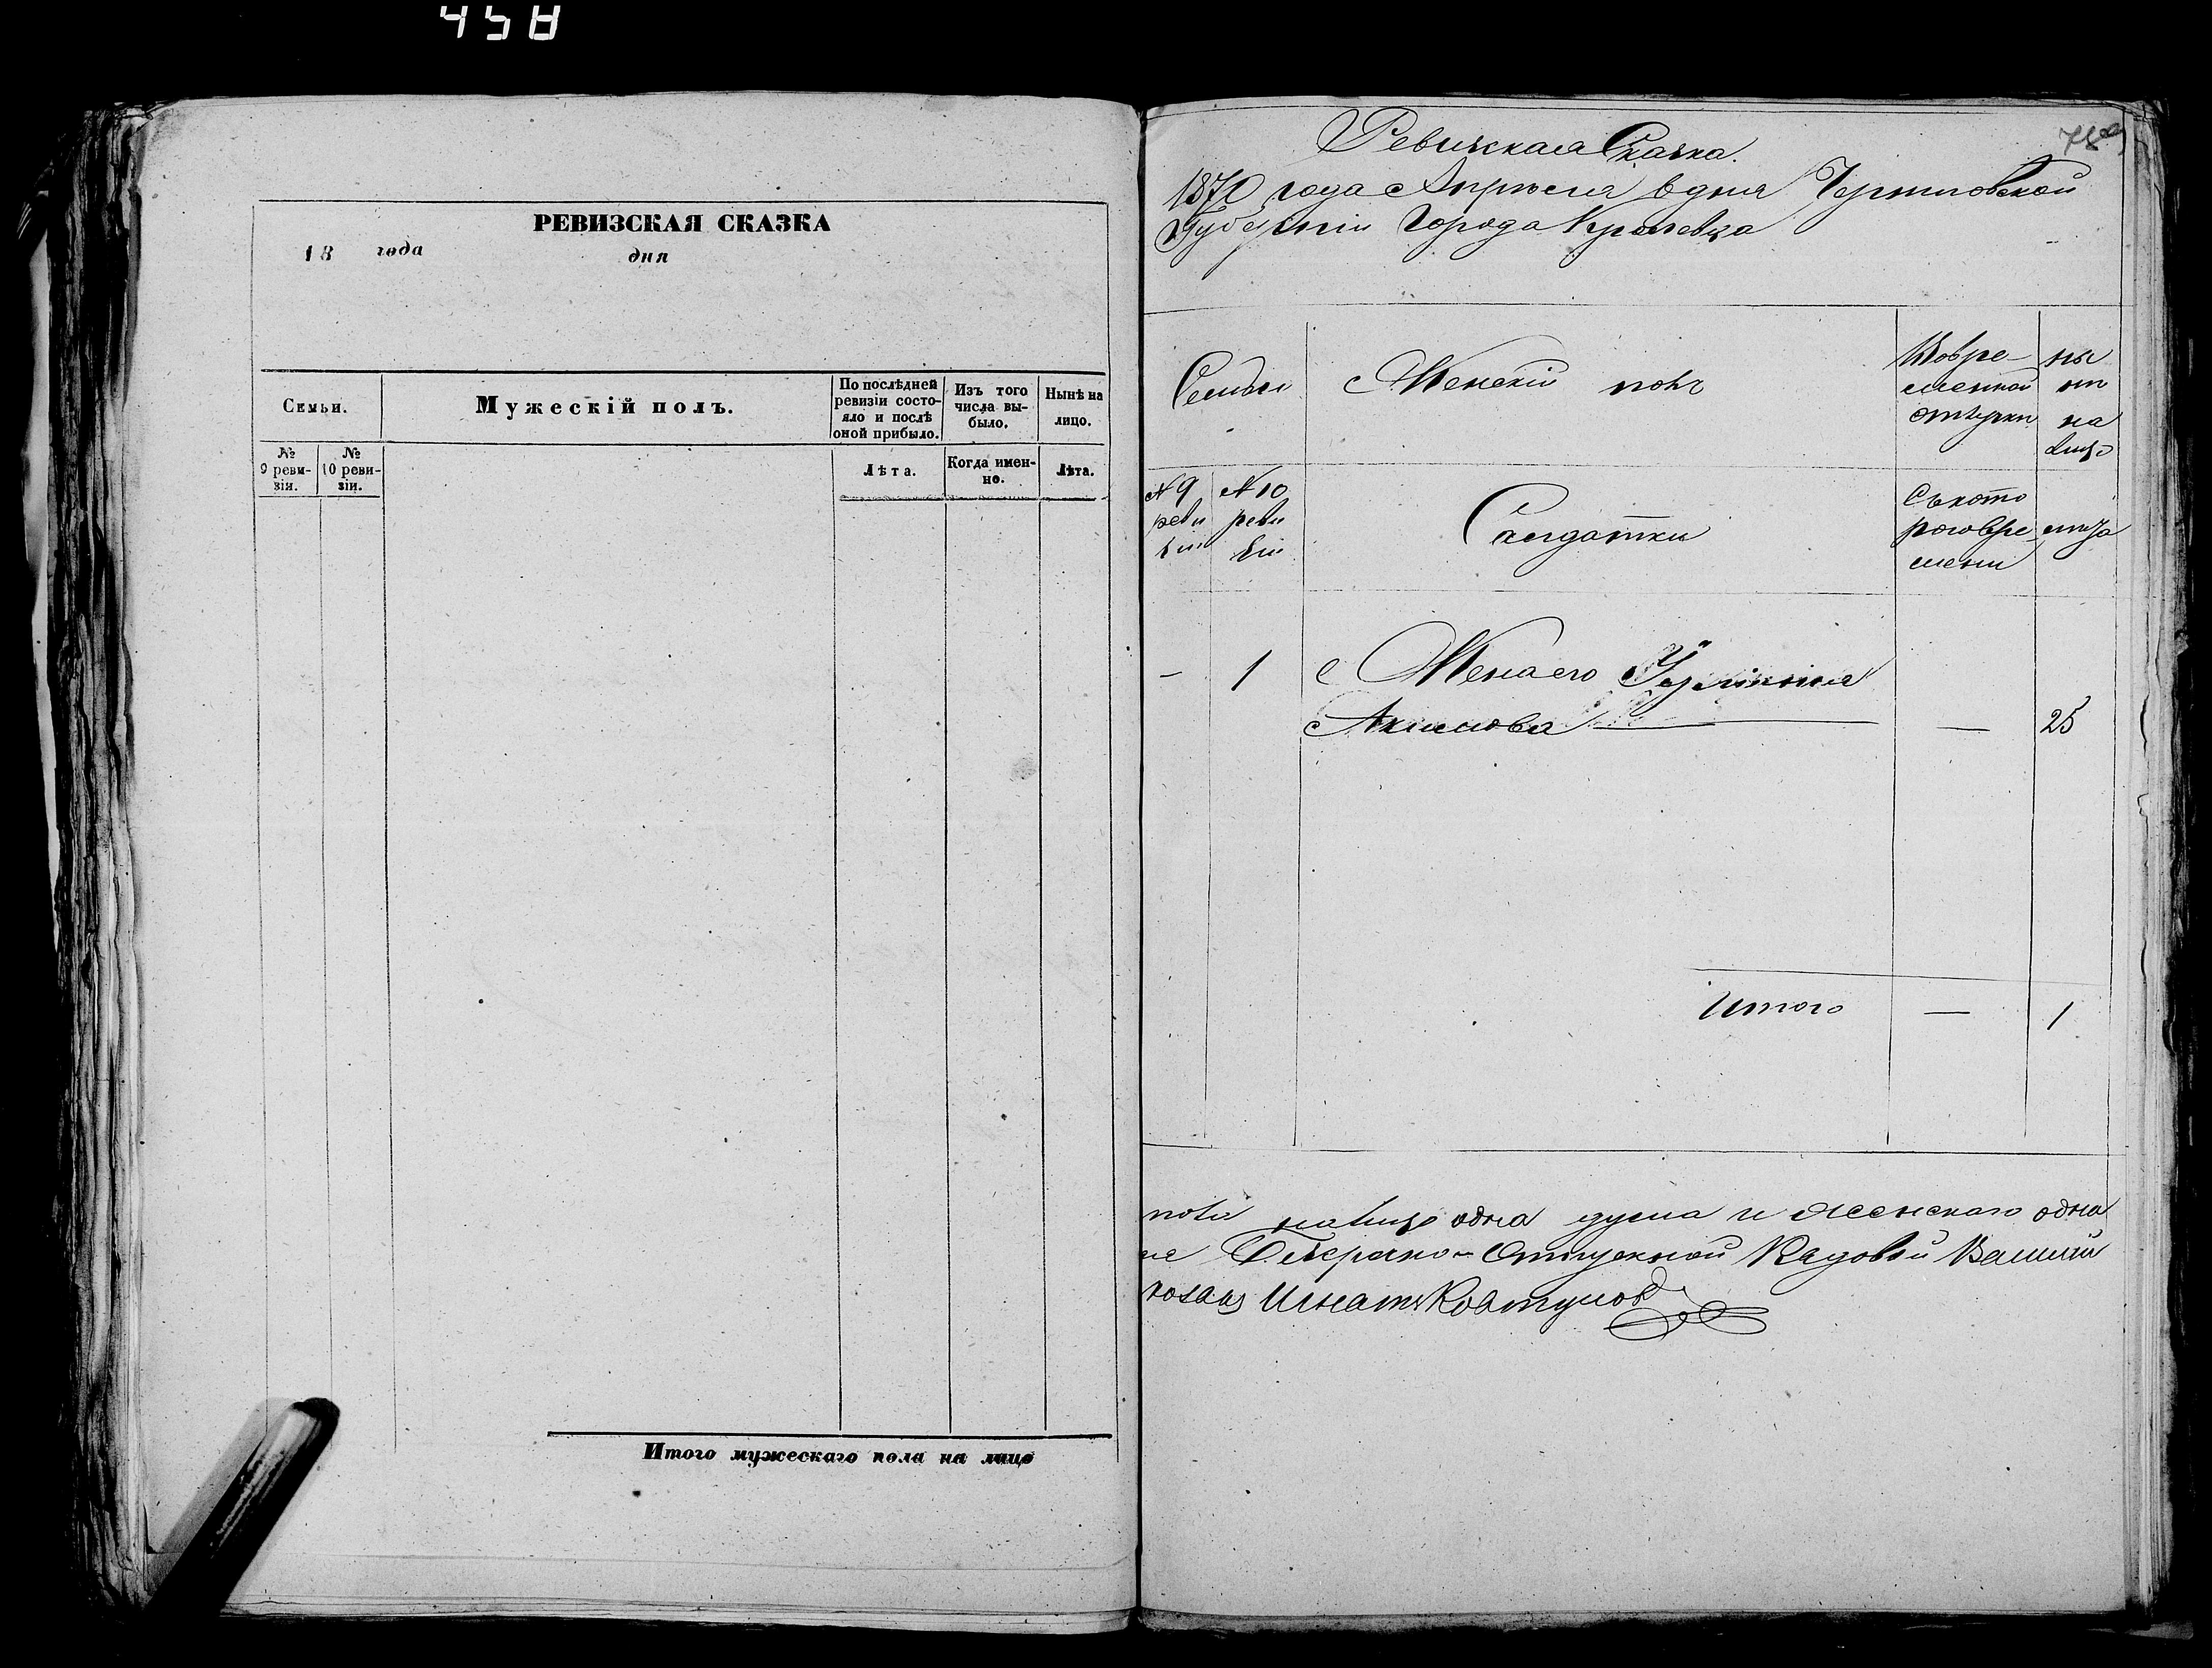 458
РЕВИЗСКАЯ СКАЗКА
18 года дня
Семьи.
Мужескій полъ.
По послѣдней ревизіи состояло и послѣ оной прибыло.
Изъ того числа выбыло.
Нынѣ на лицо.
№ 9 ревизіи.
№ 10 ревизіи.
Лѣта.
Когда именно.
Лѣта.
Итого мужескаго пола на лицо
Ревизская Сказка.
1870 года Апрѣля дня Черниговской
Губерніи Города Кролевца
Семьи
Женскій полъ
Вовре-
менной
отлучки
ны
на
лицо
№ 9
реви
зіи
№ 10
реви
зіи
Салдатки
Съкото
рговре
мени
лѣта
— 1 Жена его
Акимова — — 25
Итого — 1
пола налицо одна душа и женскаго одна
Безсрочно-Отпускной Рядовой
Игнатъ Ковтуновъ